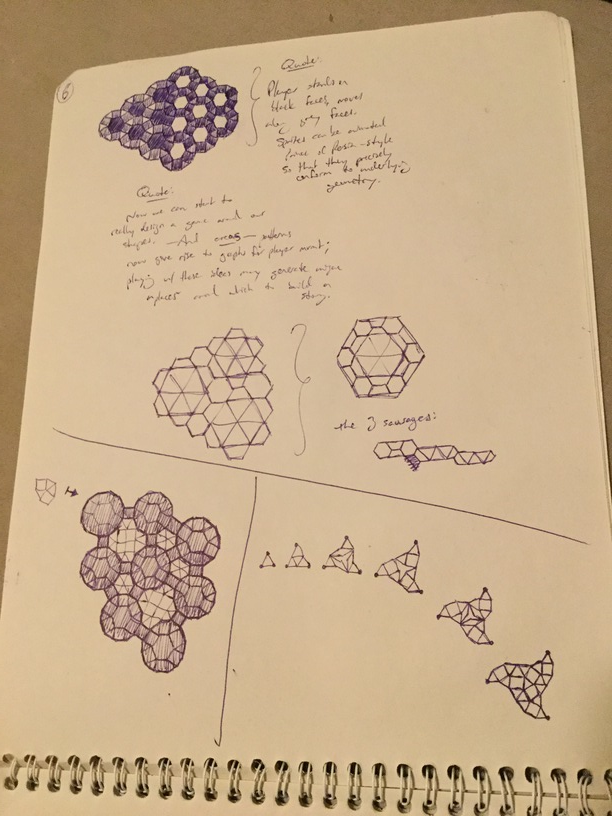 6
Quote:
Player stands on
black faces, moves
along grey faces.
Sprites can be animated
Prince of Persia-style
so that they precisely
conform to underlying
geometry.
Quote:
Now we can start to
really design a game around our
shapes. — And — patterns
now give rise to graphs for player movement;
playing w/ these ideas may generate unique
places around which to build a
story.
the 3 sausages: